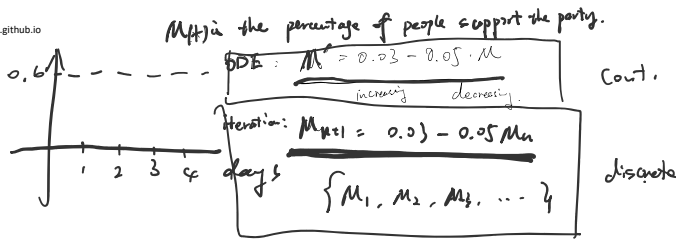 .github.io
M(t) is the percentage of people support the party.
0.6
ODE: M' = 0.03 - 0.05 · M
increasing decreasing
Cont.
iteration: Mn+1 = 0.03 - 0.05 Mn
1 2 3 4 days
{M1, M2, M3, ... }
discrete